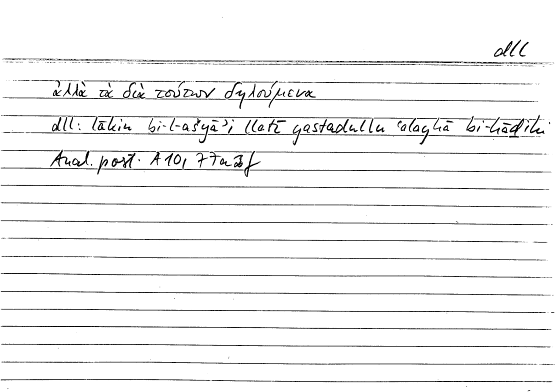 dll
ἀλλὰ τὰ διὰ τούτων δηλούμενα
dll: lākin bi-l-ašyāʾi llatī yastadullu ʿalayhā bi-hāḏihi
Anal. post. A 10, 77a f